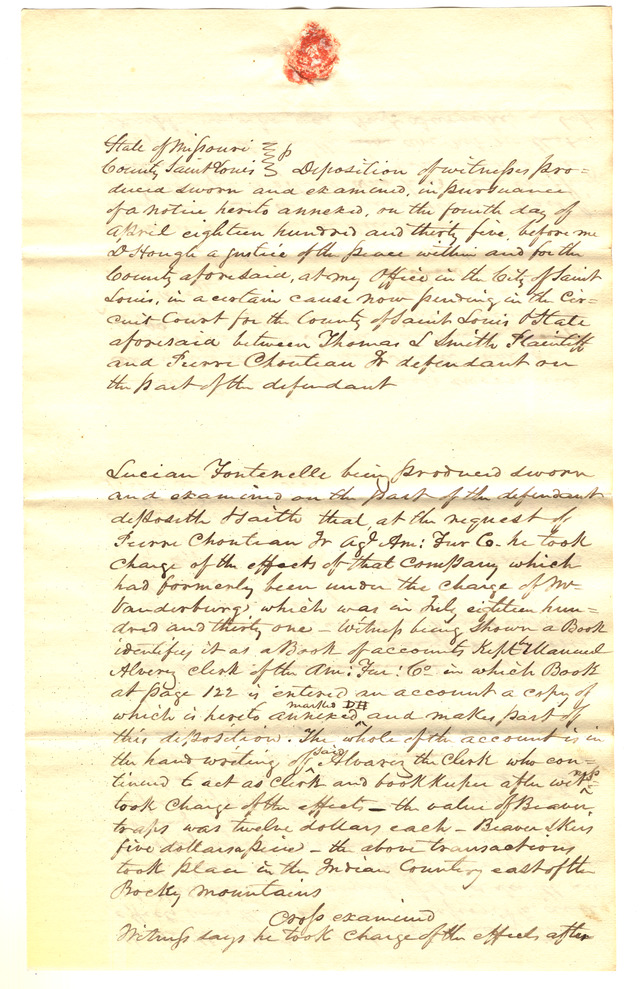 State of Missouri
County Saint Louis } ss Deposition of witnesses pro=
duced sworn and examined, in pursuance
of a notice hereto annexed, on the fourth day of
April eighteen hundred and thirty five before me
D Hough a justice of the peace within and for the
County aforesaid, at my Office in the City of Saint
Louis, in a certain cause now pending in the Cir=
cuit Court for the County of Saint Louis & State
aforesaid between Thomas L Smith Plaintiff
and Pierre Chouteau Jr defendant on
the part of the defendant
Lucian Fontenelle being produced sworn
and examined on the part of the defendant
deposeth & saith that, at the request of
Pierre Chouteau Jr agt Am: Fur Co. he took
Charge of the effects of that Company which
had formerly been under the charge of Mr
Vanderburg, which was in July eighteen hun=
dred and thirty one – Witness being shown a Book
identifies it as a Book of accounts kept by Manuel
Alverez clerk of the Am: Fur: Co in which Book
at page 122 is entered an account a copy of
which is hereto annexed, marked D# and makes part of
this deposition. The whole of the account is in
the hand writing of said Alvarez the Clerk who con=
tinued to act as clerk and book keeper after witness
took charge of the effects – the value of Beaver
traps was twelve dollars each – Beaver Skins
five dollars apiece – the above transactions
took place in the Indian Country east of the
Rocky Mountains
Cross examined
Witness says he took charge of the effects after